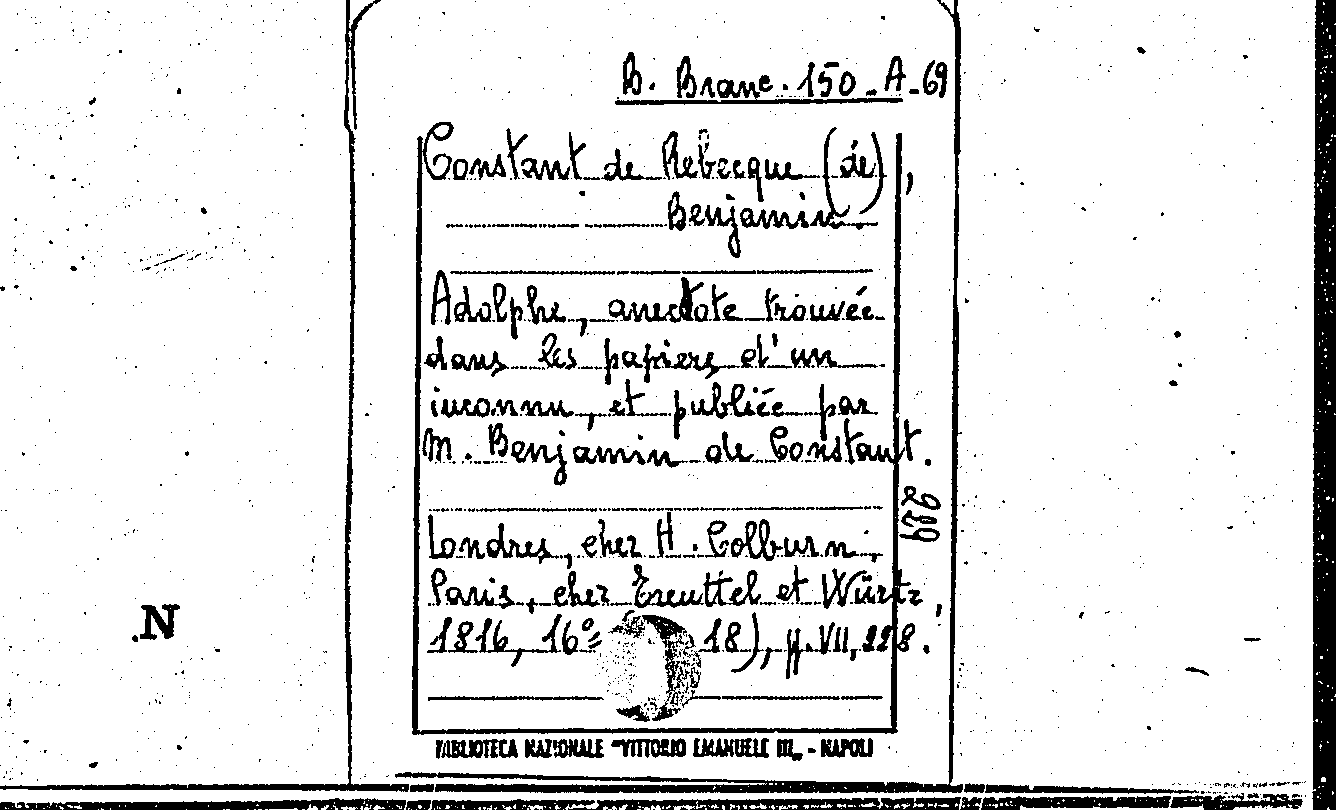 B. Branc. 150-A-69
Constant de Rebecque (de),
Benjamin.
Adolphe, anecdote trouvée
dans les papiers d'un
inconnu, et publiée par
M. Benjamin de Constant.
Londres, chez H. Colburn;
Paris, chez Treuttel et Würtz,
1816, 16º 18), pp. VII, 228.
BIBLIOTECA NAZIONALE "VITTORIO EMANUELE III" - NAPOLI
N.